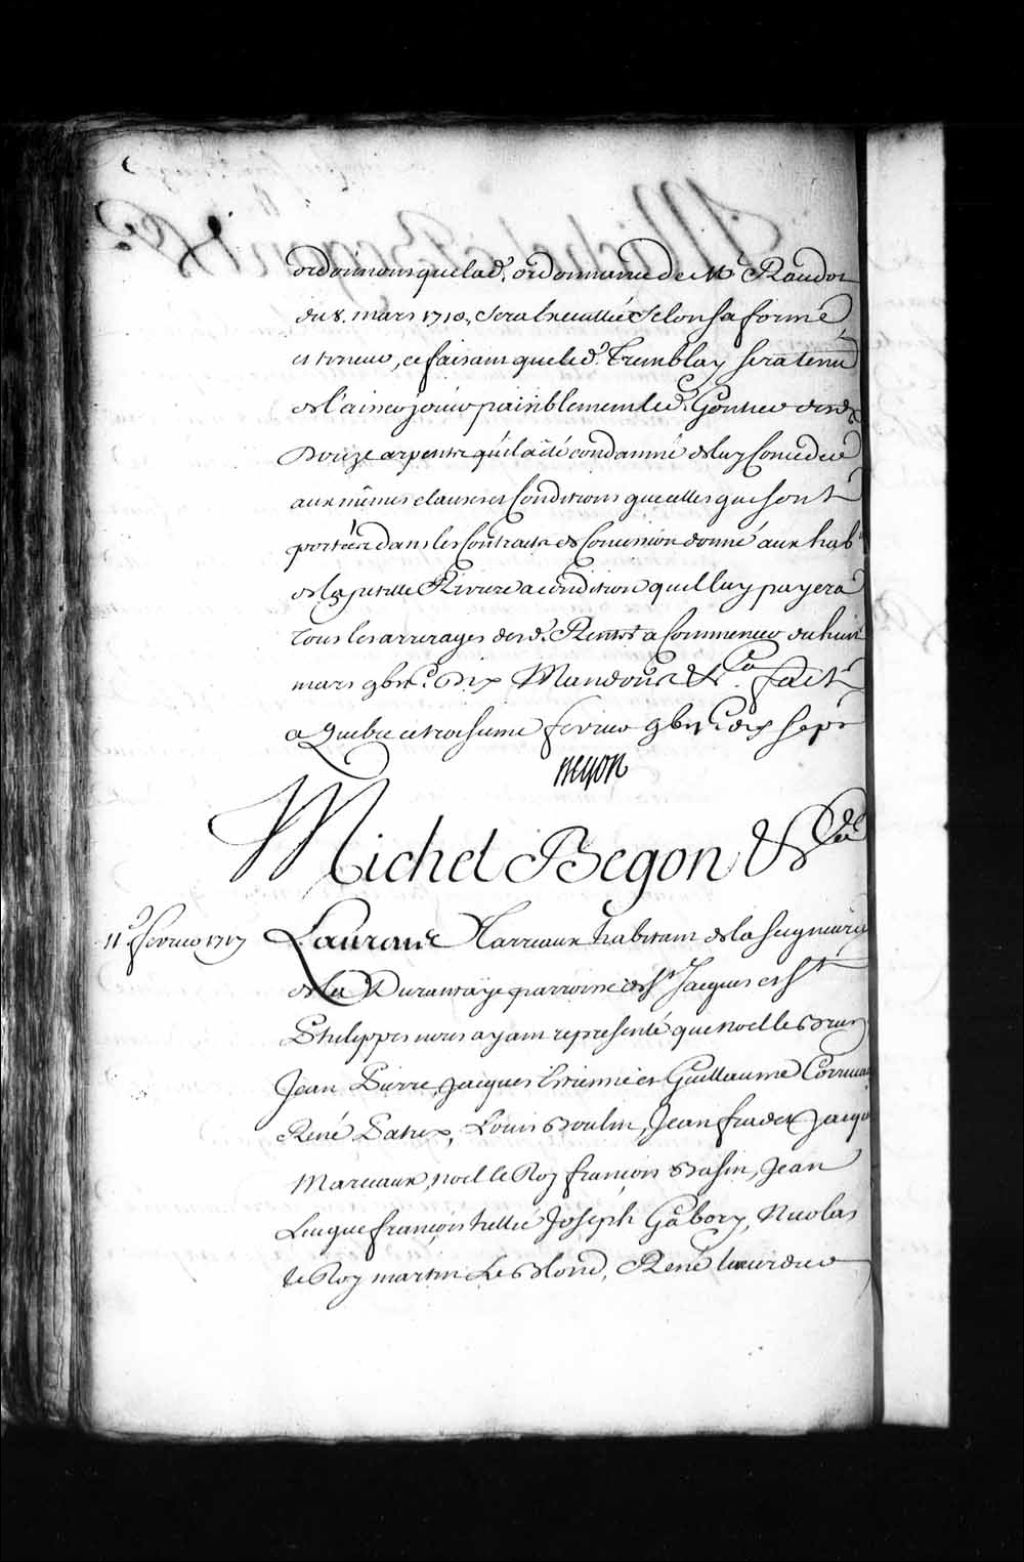 ordonnons que lad.e ordonnance de Mr Raudot
du 8. mars 1710, sera executtée selon sa forme
et teneur, ce faisant que led. Tremblay sera tenu
de laisser jouir paisiblement led. Gontier desd.
Douze arpents qu'il a été condamné de luy Conceder
aux mêmes clauses et Conditions que celles qui sont
portées dans les Contracts de Concession donné aux hab.
de la petitte Riviere a condition quil luy payera
Tous les arrerages desd. Rentes a Commencer du huit
mars gbijc. Dix Mandons &ca. fait
a Quebec ce troisieme fevrier gbijc dix sept
Begon
Michel Begon &ca
11e. fevrier 1717
Laurans habitant de la seigneurie
de la Durantaye parroisse de St Jacques et St
Philippes nous ayant representé que Noel le Brun
Jean Pierre, Jacques Estienne et Guillaume
René Patry, Louis Boulin, Jean fradet Jacques
Marceaux, noel le Roy françois Basin, Jean
françois Joseph Gabory, Nicolas
le Roy martin Le Blond, René